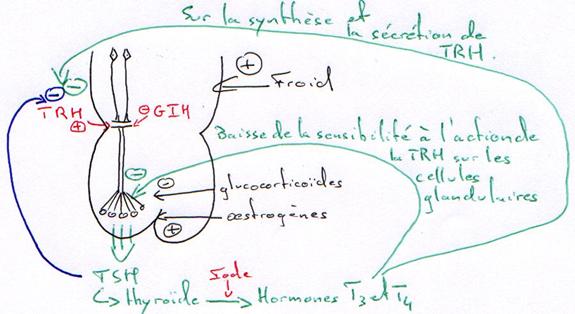 Sur la synthèse et
la sécrétion de
TRH.
+
- -
Froid
TRH
+
- GIH
Baisse de la sensibilité à l'action de
la TRH sur les
cellules
glandulaires
-
-
glucocorticoïdes
œstrogènes
+
TSH
Iode
↳ thyroïde → Hormones T3 et T4